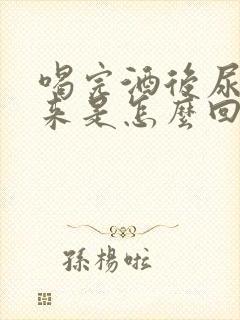 喝完酒後尿
來是怎麼回
孫楊啦